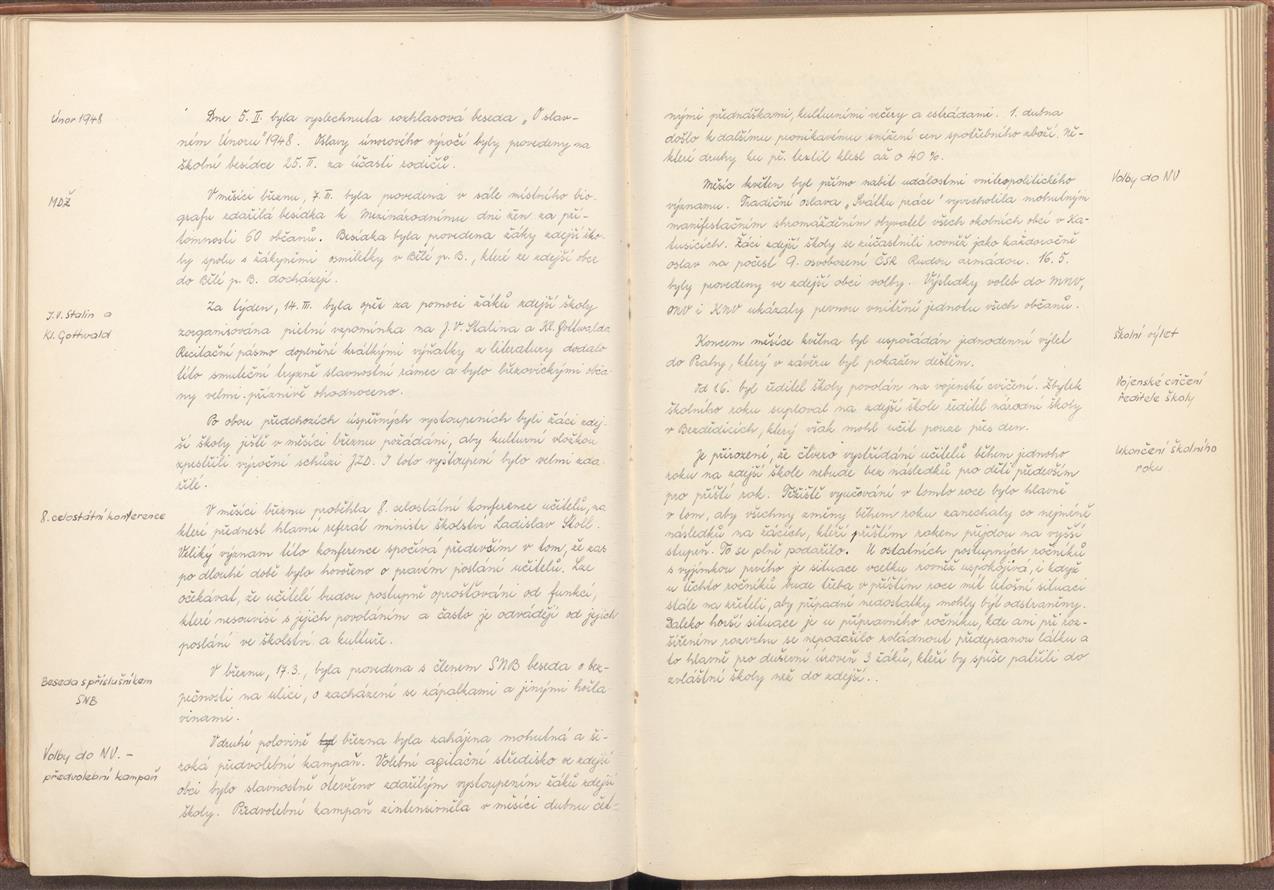 Únor 1948
Dne 5. II. byla vyslechnuta rozhlasová beseda „O slav-
ném Únoru" 1948. Oslavy únorového výročí byly provedeny na
školní besídce 25. II. za účasti rodičů.
MDŽ
V měsíci březnu, 7. III. byla provedena v sále místního bio-
grafu zdařilá besídka k Mezinárodnímu dni žen za pří-
tomnosti 60 občanů. Besídka byla provedena žáky zdejší ško-
ly spolu s žákyněmi osmiletky v Bělé p. B., které ze zdejší obce
do Bělé p. B. docházejí.
J. V. Stalin a
Kl. Gottwald
Za týden, 14. III. byla opět za pomoci žáků zdejší školy
zorganisována pietní vzpomínka na J. V. Stalina a Kl. Gottwalda.
Recitační pásmo doplnění krátkými výňatky z literatury dodalo
této smuteční tryzně slavnostní rámec a bylo březovickými obča-
ny velmi příznivě ohodnoceno.
Po obou předchozích úspěšných vystoupeních byli žáci zdej-
ší školy ještě v měsíci březnu požádáni, aby kulturní vložkou
zpestřili výroční schůzi JZD. I toto vystoupení bylo velmi zda-
řilé.
8. celostátní konference
V měsíci březnu proběhla 8. celostátní konference učitelů, na
které přednesl hlavní referát ministr školství Ladislav Štoll.
Veliký význam této konference spočívá především v tom, že zas
po dlouhé době bylo hovořeno o pravém poslání učitelů. Lze
očekávat, že učitelé budou postupně oprošťováni od funkcí,
které nesouvisí s jejich povoláním a často je odvádějí od jejich
poslání ve školství a kultuře.
Beseda s příslušníkem
SNB
V březnu, 17.3., byla provedena s členem SNB beseda o bez-
pečnosti na ulici, o zacházení se zápalkami a jinými hořla-
vinami.
Volby do NV. –
předvolební kampaň
V druhé polovině byl března byla zahájena mohutná a ši-
roká předvolební kampaň. Volební agitační středisko ve zdejší
obci bylo slavnostně otevřeno zdařilým vystoupením žáků zdejší
školy. Předvolební kampaň zintensivněla v měsíci dubnu čet-
nými přednáškami, kulturními večery a estrádami. 1. dubna
došlo k dalšímu pronikavému snížení cen spotřebního zboží. Ně-
které druhy ku př. textil klesl až o 40 %.
Volby do NV
Měsíc květen byl přímo nabit událostmi vnitropolitického
významu. Tradiční oslava „Svátku práce" vyvrcholila mohutným
manifestačním shromážděním obyvatel všech okolních obcí v Ka-
tusicích. Žáci zdejší školy se zúčastnili rovněž jako každoročně
oslav na počest 9. osvobození ČSR Rudou armádou. 16. 5.
byly provedeny ve zdejší obci volby. Výsledky voleb do MNV,
ONV i KNV ukázaly pevnou vnitřní jednotu všech občanů.
Školní výlet
Koncem měsíce května byl uspořádán jednodenní výlet
do Prahy, který v závěru byl pokažen deštěm.
Vojenské cvičení
ředitele školy
Od 1.6. byl ředitel školy povolán na vojenské cvičení. Zbytek
školního roku suploval na zdejší škole ředitel národní školy
v Bezdědicích, který však mohl učit pouze přes den.
Ukončení školního
roku
Je přirozené, že čtvero vystřídání učitelů během jednoho
roku na zdejší škole nebude bez následků pro děti především
pro příští rok. Těžiště vyučování v tomto roce bylo hlavně
v tom, aby všechny změny během roku zanechaly co nejméně
následků na žácích, kteří příštím rokem přejdou na vyšší
stupeň. To se plně podařilo. U ostatních postupných ročníků
s vyjímkou prvého je situace vcelku rovněž uspokojivá, i když
u těchto ročníků bude třeba v příštím roce mít letošní situaci
stále na zřeteli, aby případné nedostatky mohly být odstraněny.
Daleko horší situace je u přípravného ročníku, kde ani při roz-
šířeném rozvrhu se nepodařilo zvládnout předepsanou látku a
to hlavně pro duševní úroveň 3 žáků, kteří by spíše patřili do
zvláštní školy než do zdejší..